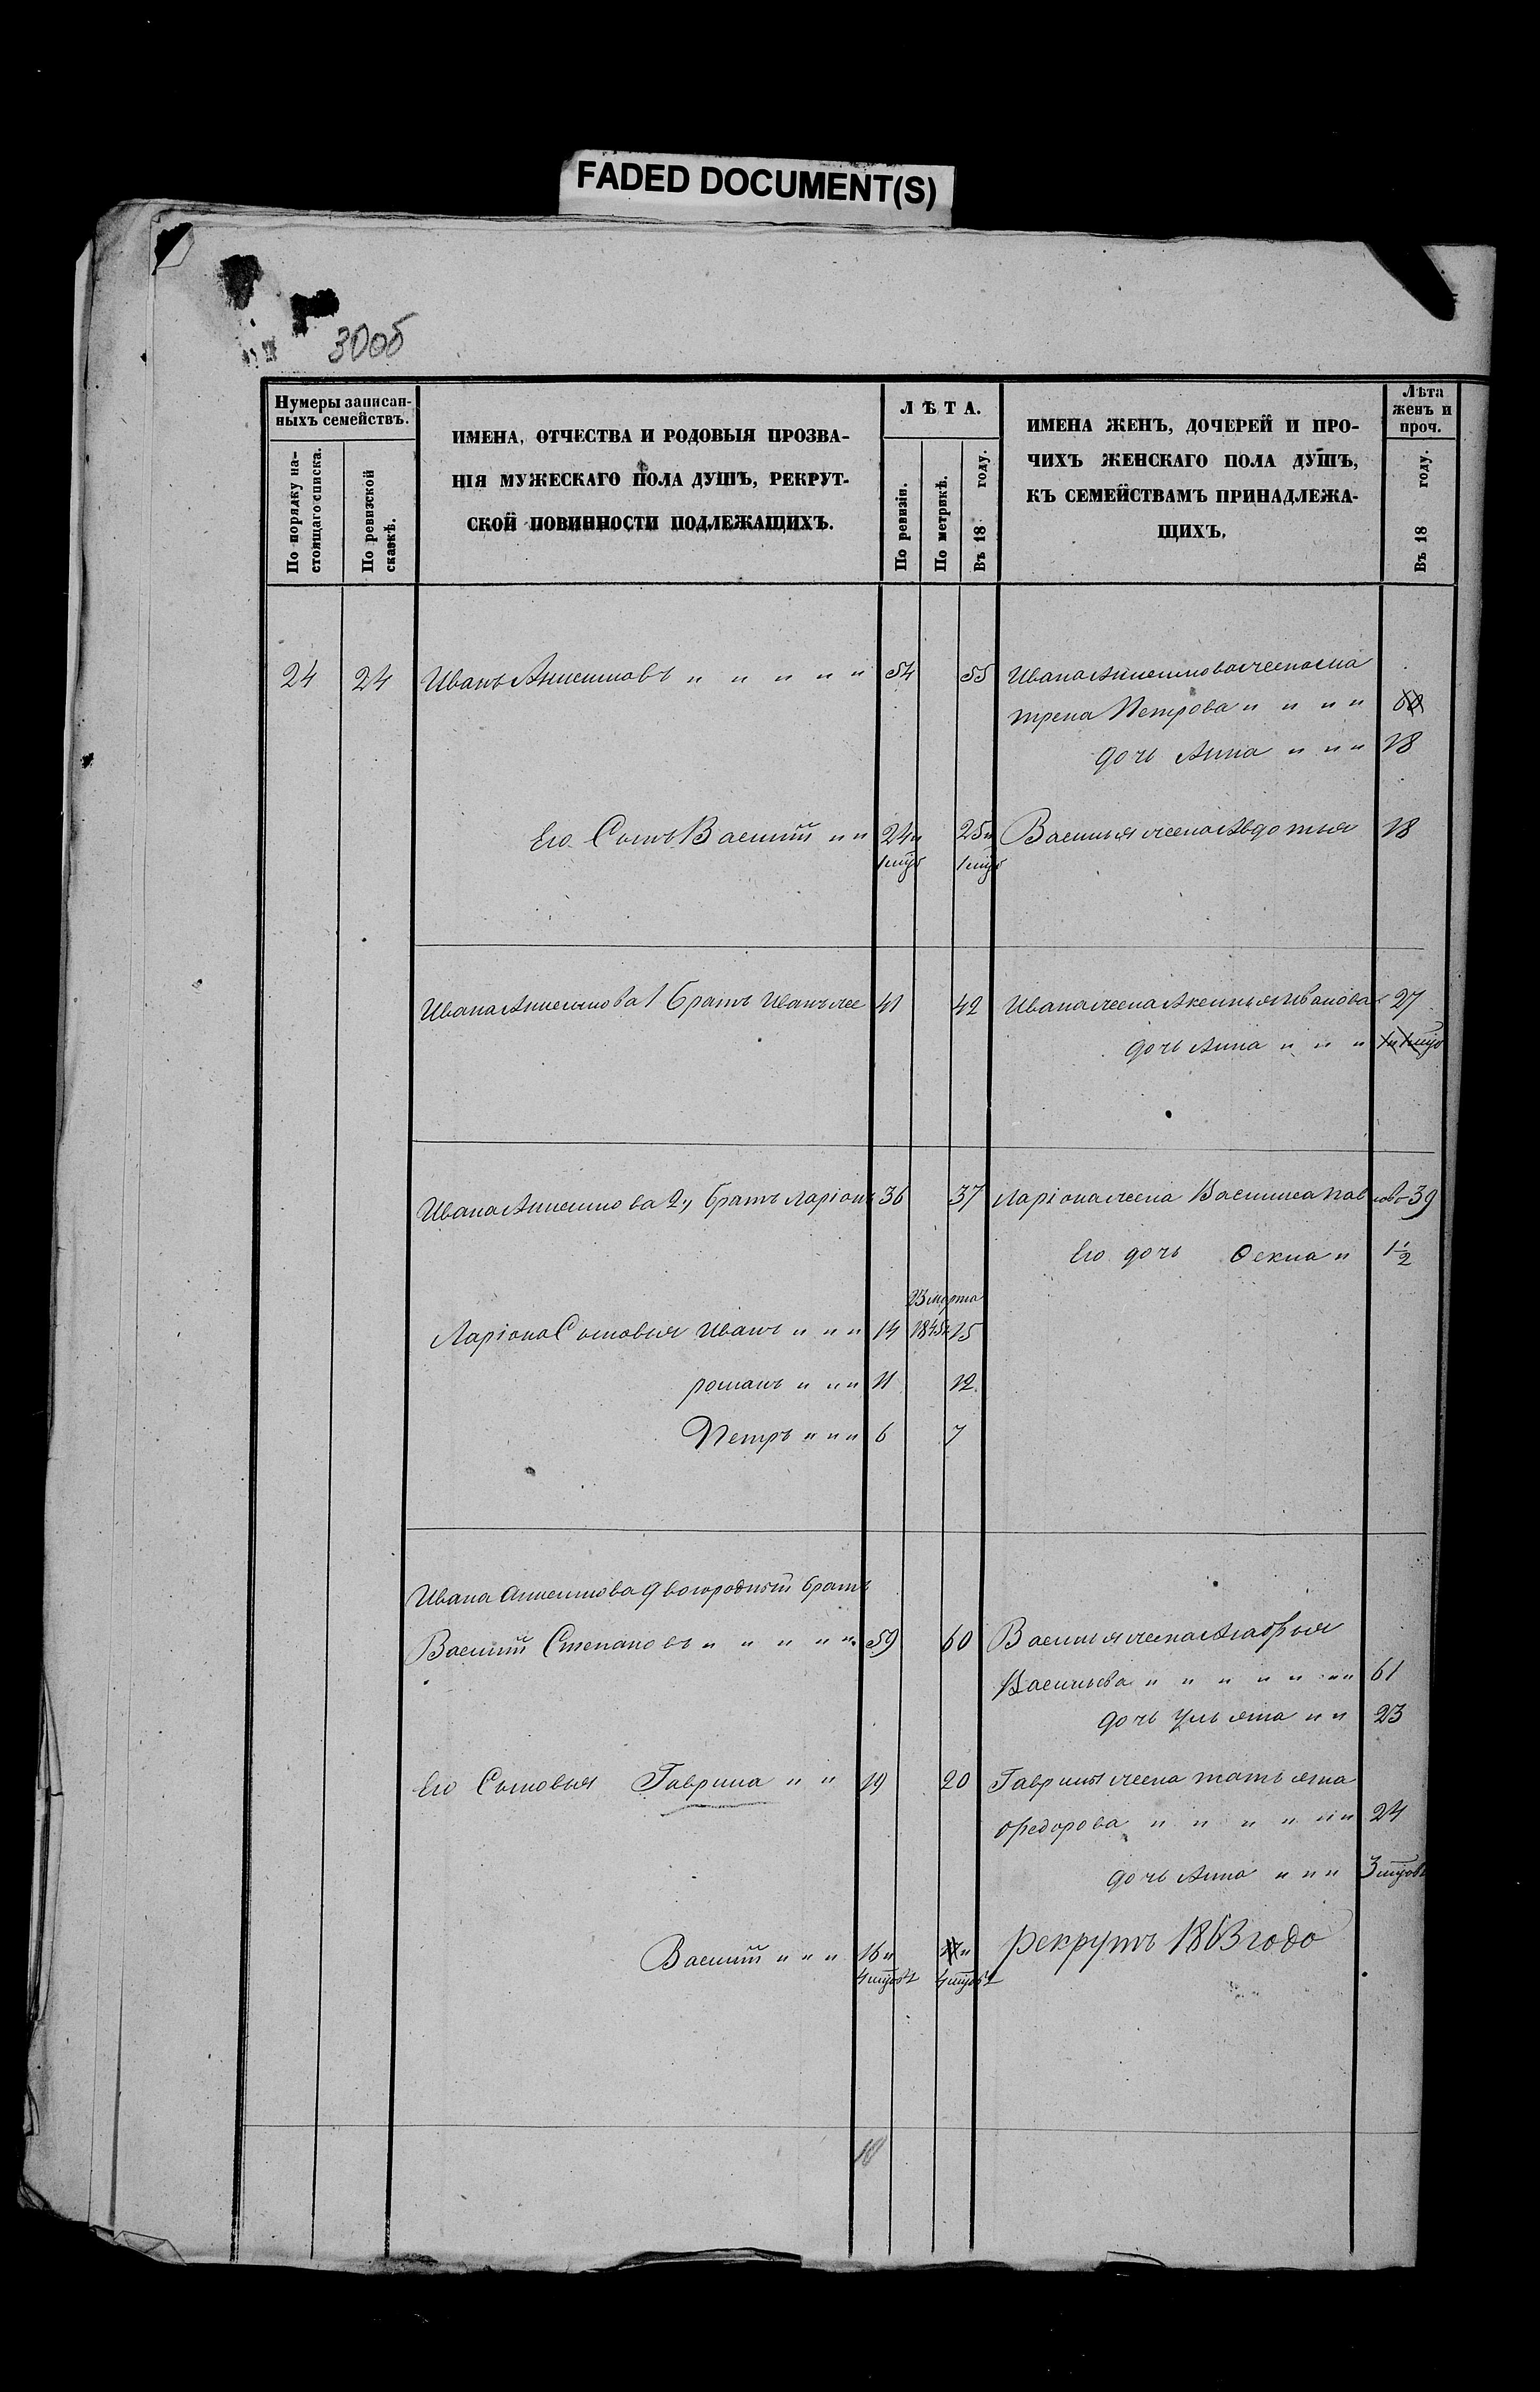 FADED DOCUMENT(S)
30об
Нумеры записан-
ныхъ семействъ.
По порядку на-
стоящаго списка.
По ревизской
сказкѣ.
ИМЕНА, ОТЧЕСТВА И РОДОВЫЯ ПРОЗВА-
НІЯ МУЖЕСКАГО ПОЛА ДУШЪ, РЕКРУТ-
СКОЙ ПОВИННОСТИ ПОДЛЕЖАЩИХЪ.
ЛѢТА.
По ревизіи.
По метрикѣ.
Въ 18 году.
ИМЕНА ЖЕНЪ, ДОЧЕРЕЙ И ПРО-
ЧИХЪ ЖЕНСКАГО ПОЛА ДУШЪ,
КЪ СЕМЕЙСТВАМЪ ПРИНАДЛЕЖА-
ЩИХЪ.
Лѣта
женъ и
проч.
Въ 18 году.
24 24 Иванъ Анисимовъ " " " " " 54 55 Ивана Анисимова жена Ма
трена Петрова " " " "
дочь Анна " " " 18
Его Сынъ Василий " " 24 и 25 и Василья жена Авдотья 18
Ивана Анисимова 1 братъ Иванъ же 41 42 Ивана жена Аксинья Иванова 27
дочь Анна " " "
Ивана Анисимова 2й братъ Ларіонъ 36 37 Ларіона жена Василиса Павлова 39
Его дочь Фекла " 1 1/2
23 марта
Ларіона Сыновья Иванъ " " " 14 1845 15
романъ " " " 11 12
Петръ " " " 6 7
Ивана Анисимова двоюродный братъ
Василий Степановъ " " " " " 59 60 Василья жена Агафья
Васильева " " " " " " " 61
дочь Ульяна " " 23
Его Сыновья Гаврила " " 19 20 Гаврилы жена Татьяна
Федорова " " " " " " 24
дочь Анна " " " 3
Василий " " " 16 и рекрутъ 1863 года
10